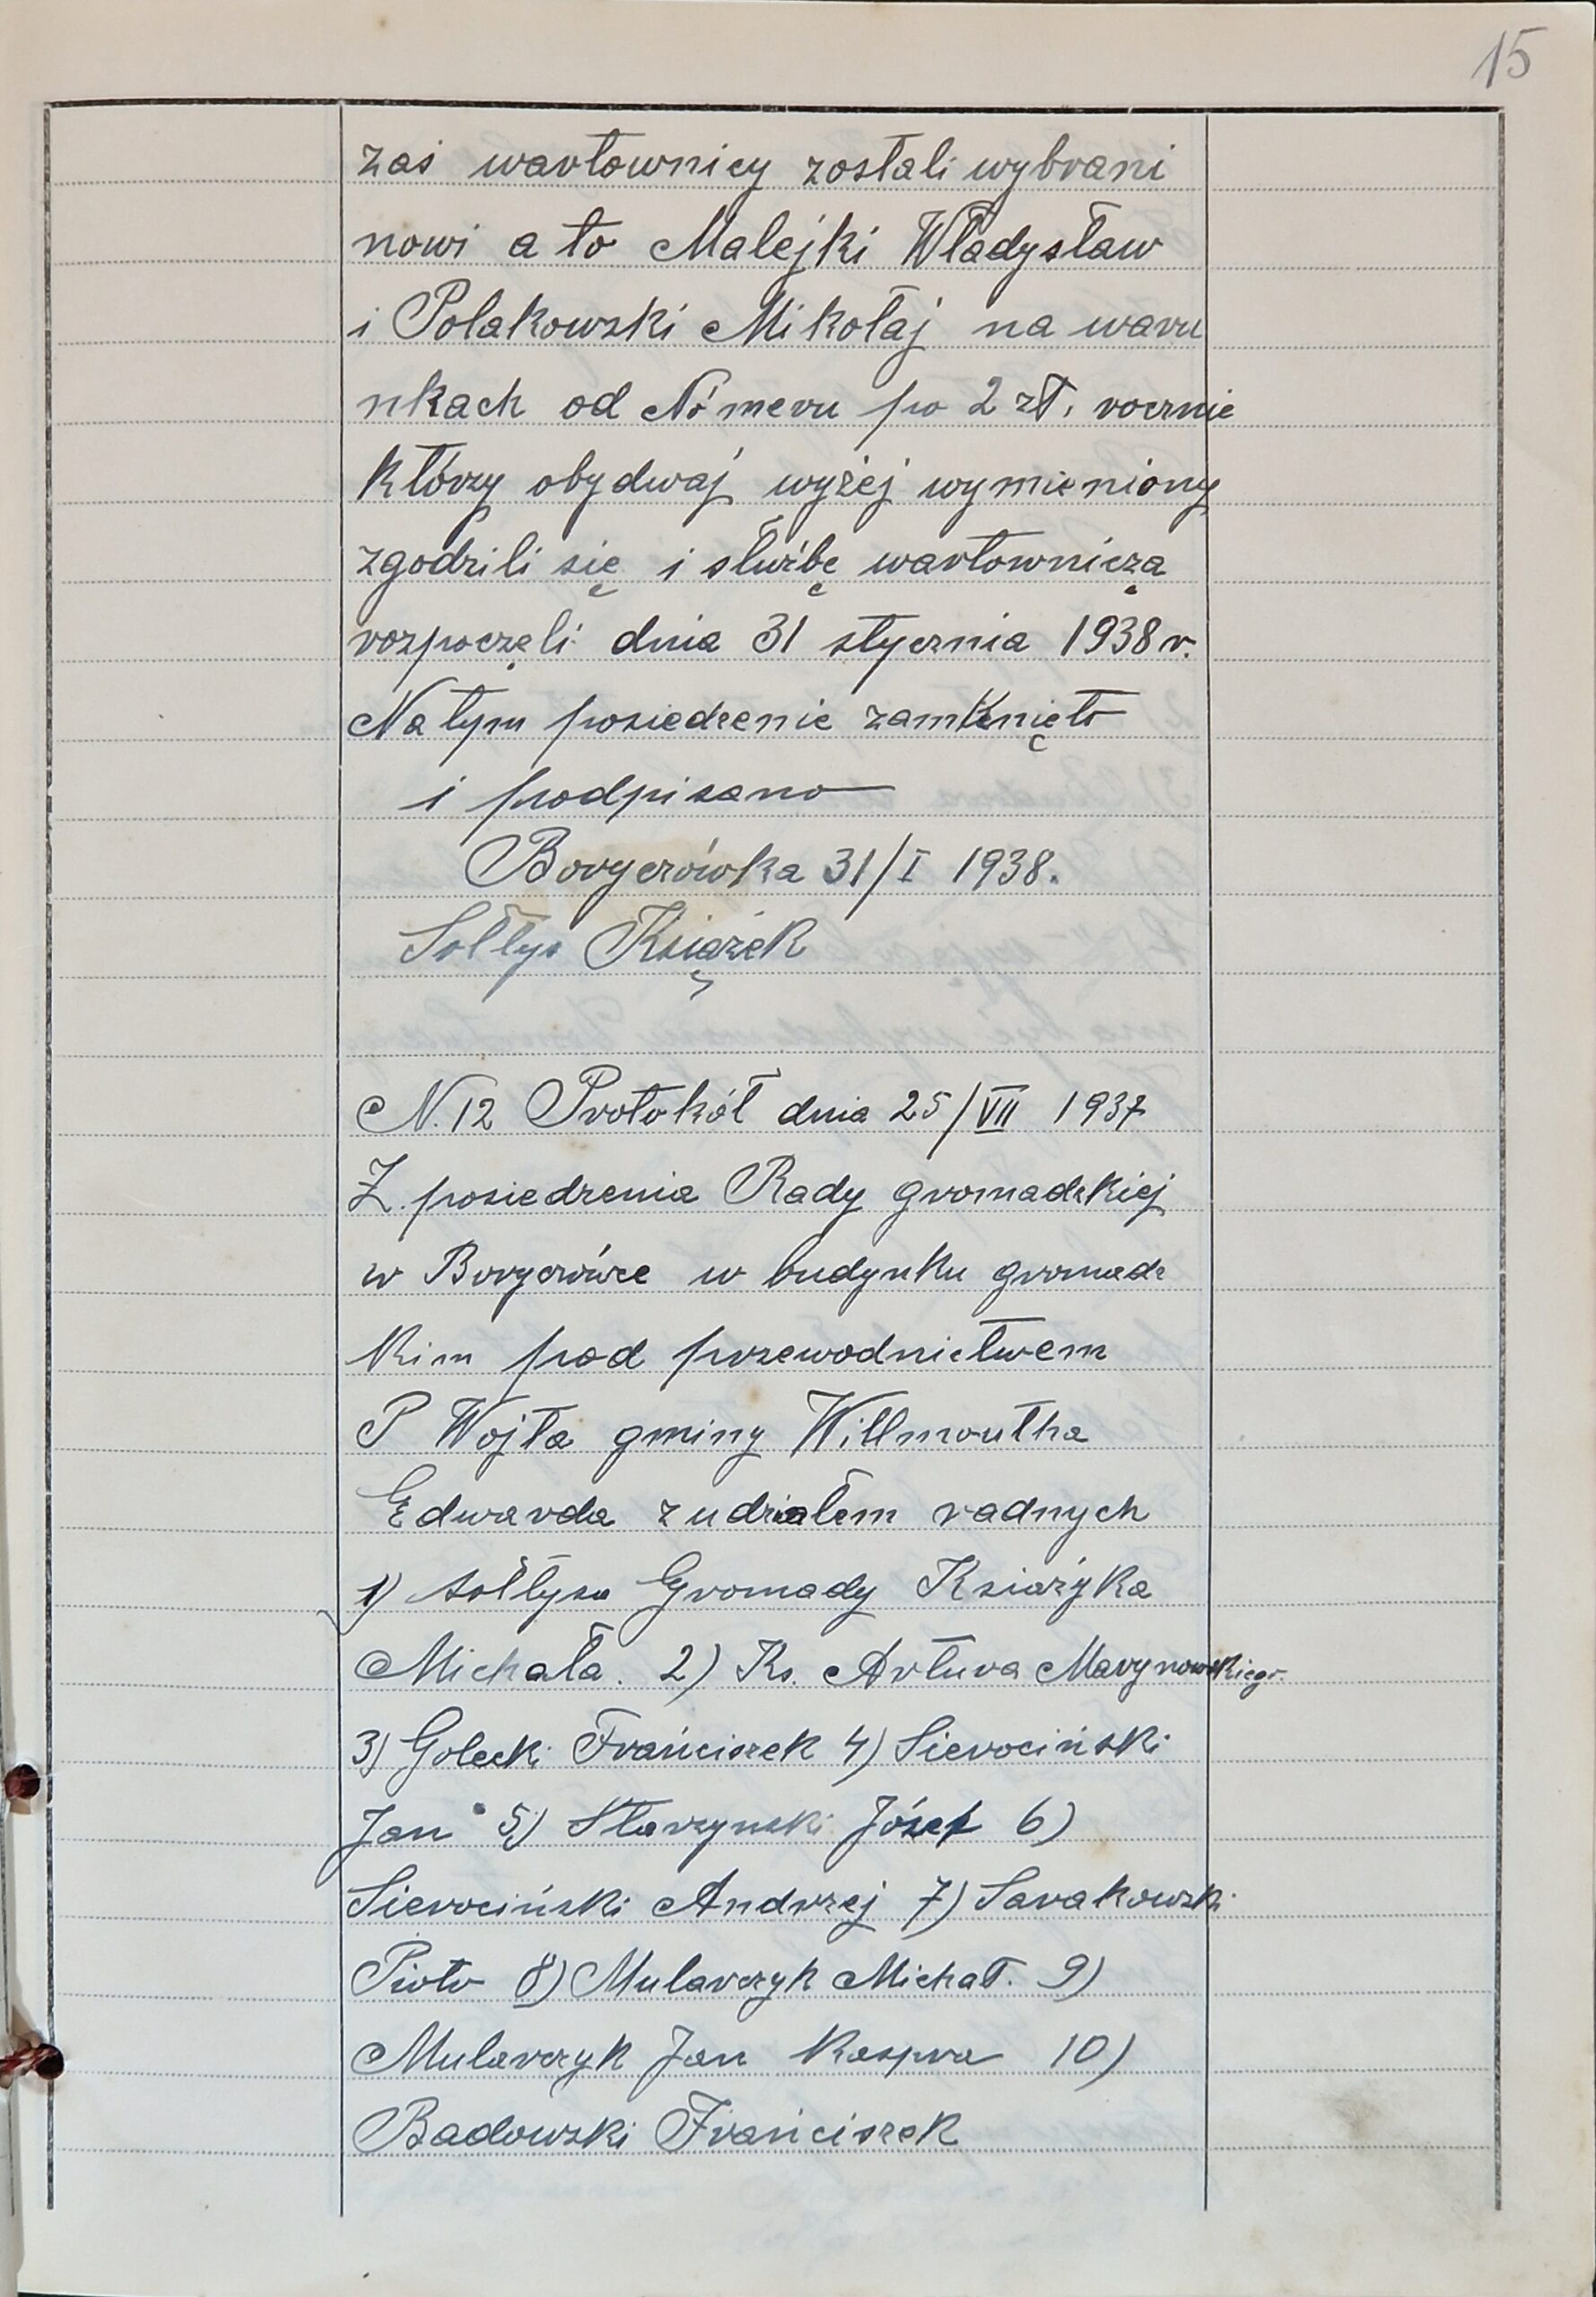 15
zaś wartownicy zostali wybrani
nowi a to Malejki Władysław
i Polakowski Mikołaj na waru
nkach od Nómeru po 2 zł. rocznie
którzy obydwaj wyżej wymieniony
zgodzili się i służbę wartowniczą
rozpoczęli dnia 31 stycznia 1938 r.
Na tym posiedzenie zamknięto
i podpisano
Boryczówka 31/I 1938.
Sołtys Książek
N. 12 Protokół dnia 25/VII 1937
Z posiedzenia Rady gromadzkiej
w Boryczówce w budynku gromadz
kim pod przewodnictwem
P Wójta gminy Willmoutha
Edwarda z udziałem radnych
1) sołtysa Gromady Książyka
Michała. 2) Ks. Artura Marynowskiego.
3) Golecki Frańciszek 4) Sierociński
Jan 5) Starzynski Józef 6)
Sierociński Andrzej 7) Sarakowski
Piotr 8) Mularczyk Michał. 9)
Mularczyk Jan Kaspra 10)
Badowski Frańciszek